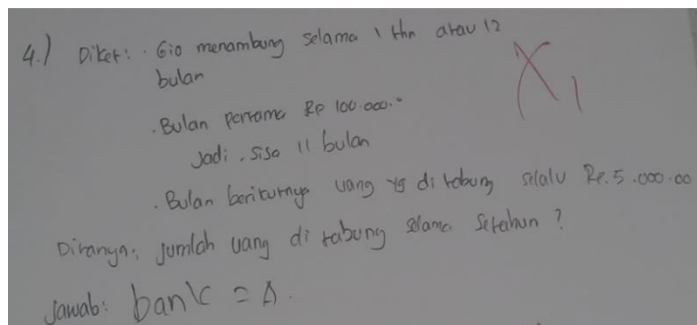 4.) Diket: · Gio menambung selama 1 thn atau 12
bulan
· Bulan pertama Rp 100.000.-
Jadi, sisa 11 bulan
· Bulan berikutnya uang yg di tabung selalu Rp. 5.000.00
Ditanya: jumlah uang di tabung selama setahun?
Jawab: bank = A.
X 1